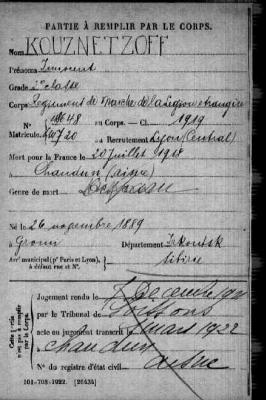 PARTIE À REMPLIR PAR LE CORPS.
Nom KOUZNETZOFF
Prénoms Innocent
Grade 2e classe
Corps Régiment de Marche de la Légion étrangère
N° 11648 au Corps. — Cl. 1919
Matricule. 720 au Recrutement Lyon (Central)
Mort pour la France le 20 juillet 1918
à Chaudun (Aisne)
Genre de mort Disparu
Né le 26 novembre 1889
à Département Irkoutsk
Arr municipal (pr Paris et Lyon), à défaut rue et N°. Sibérie
Cette partie n'est pas à remplir par le Corps.
Jugement rendu le 7 Décembre 1921
par le Tribunal de Soissons
acte ou jugement transcrit le mars 1922
à Chaudun
Aisne
N° du registre d'état civil
101-708-1922. [26434]